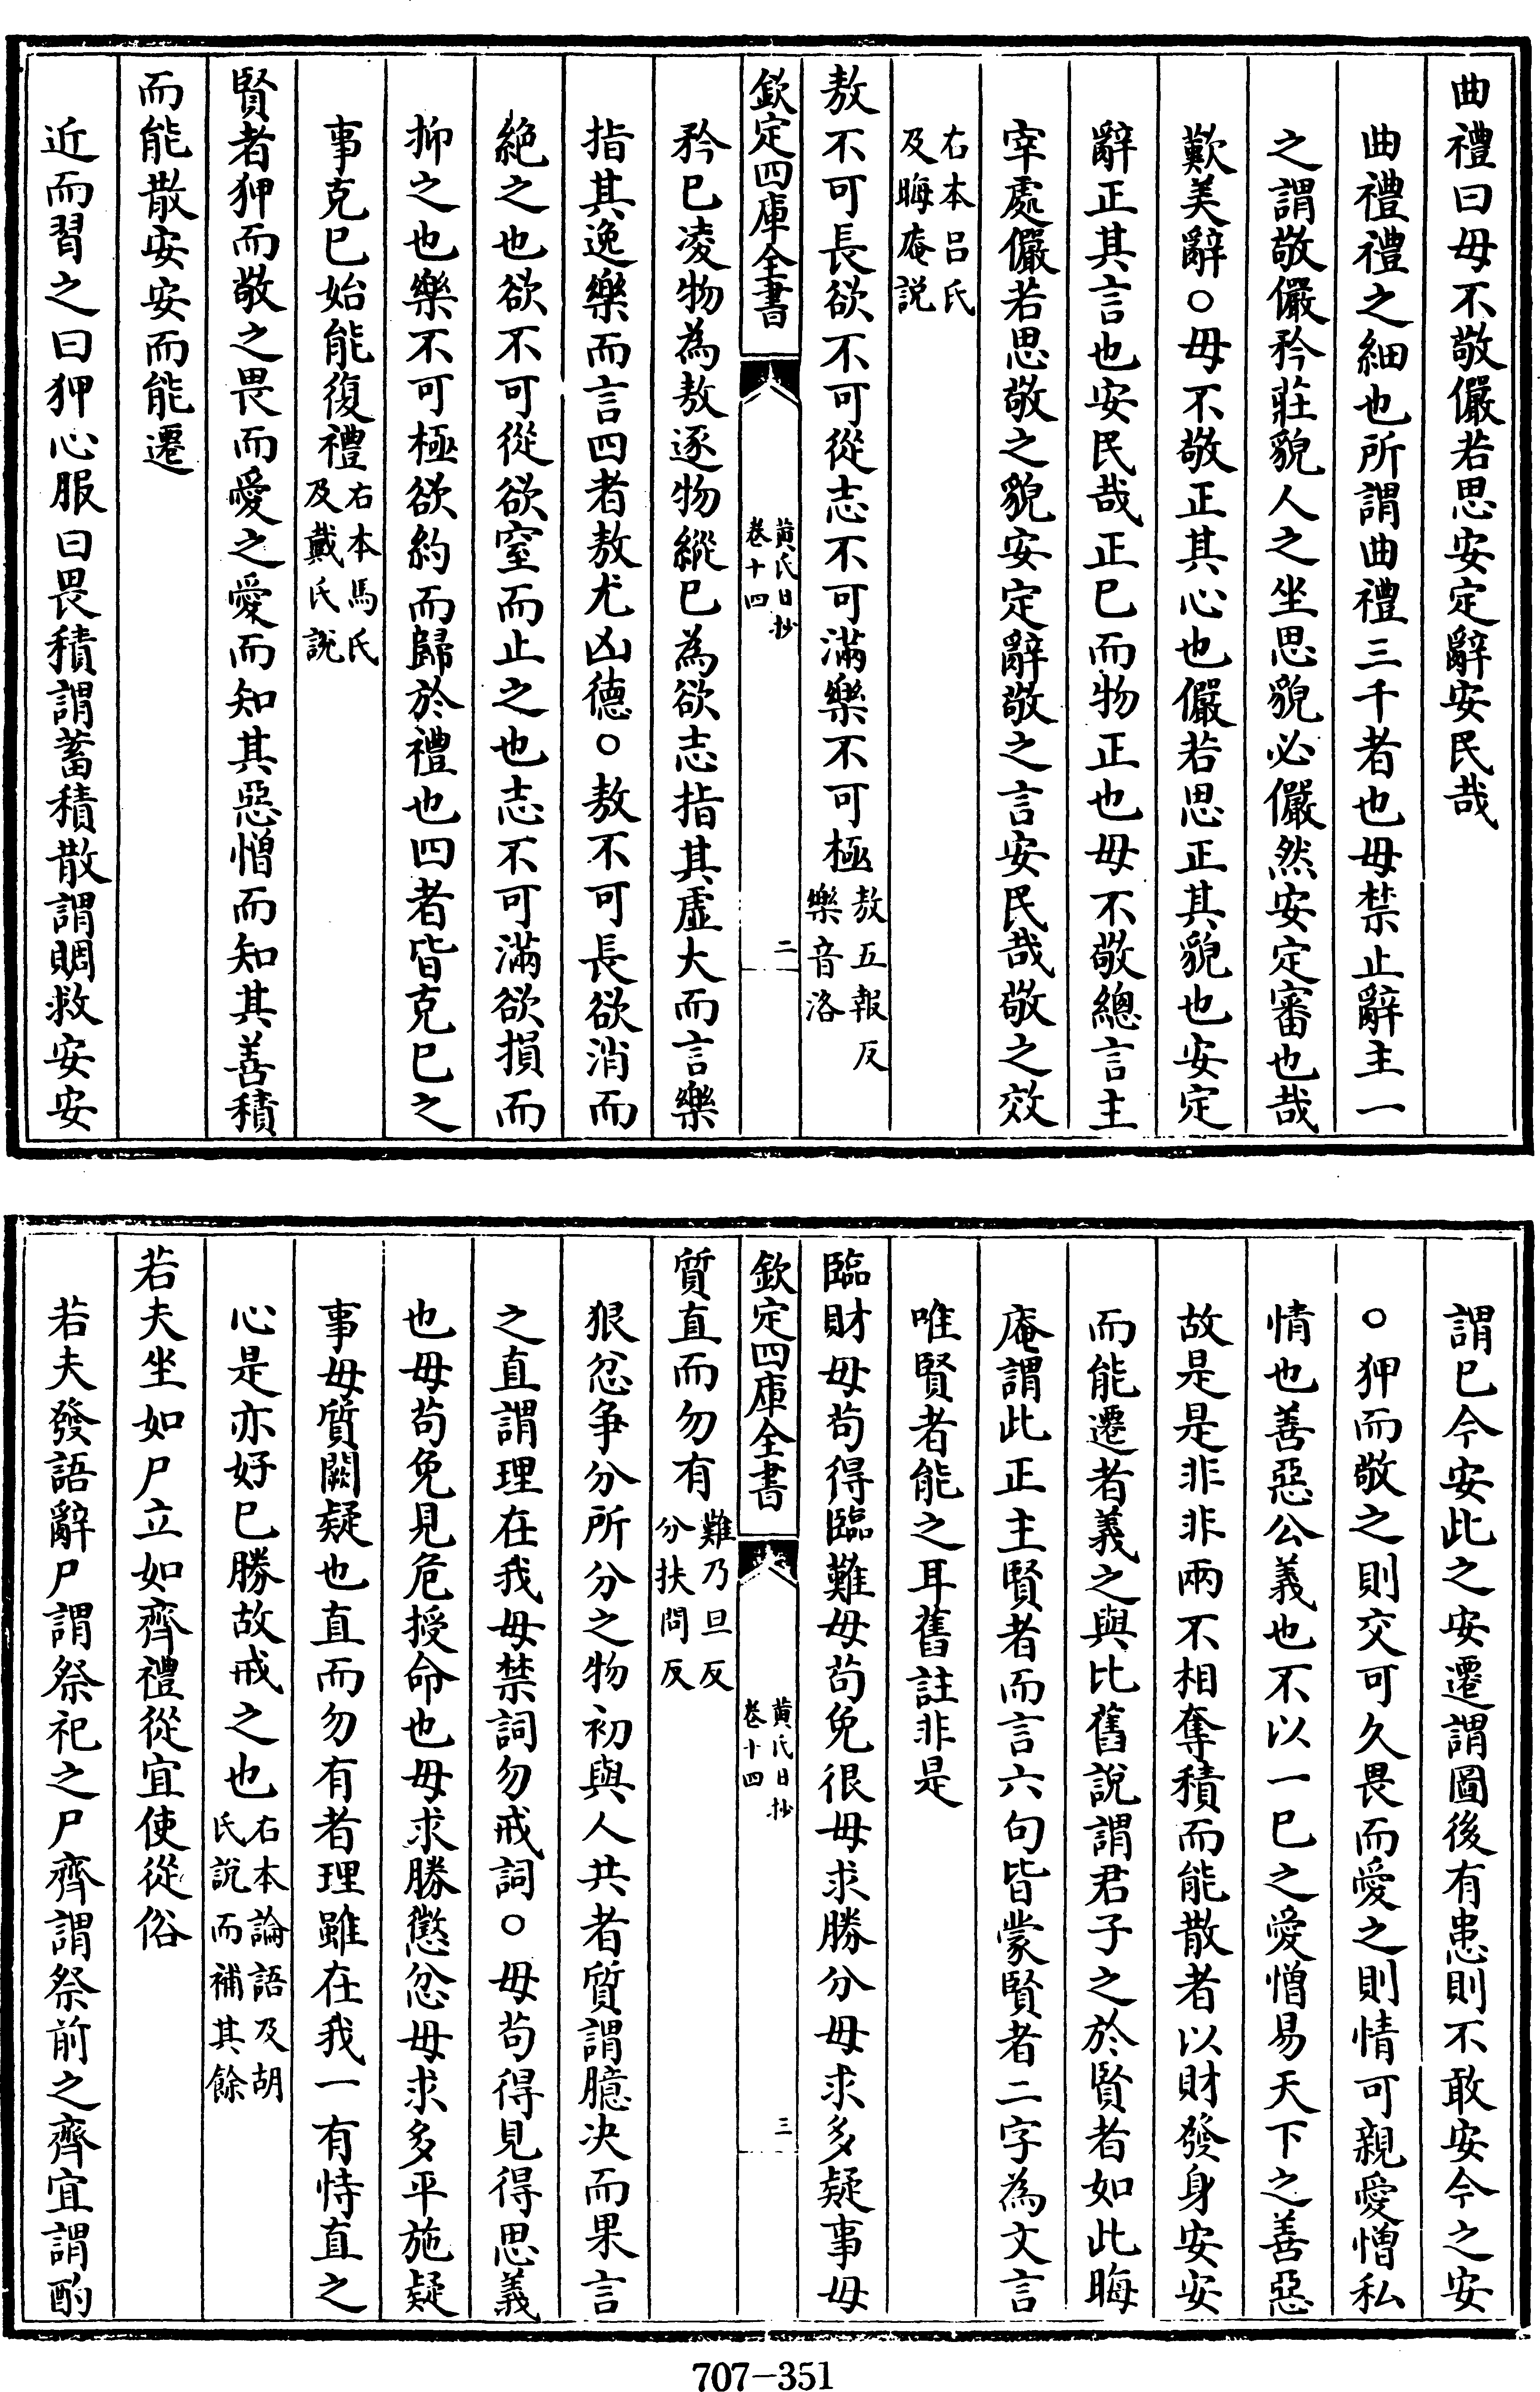 曲禮曰毋不敬儼若思安定辭安民哉
曲禮禮之細也所謂曲禮三千者也毋禁止辭主一
之謂敬儼矜莊貌人之坐思貌必儼然安定審也哉
歎美辭○毋不敬正其心也儼若思正其貌也安定
辭正其言也安民哉正已而物正也毋不敬總言主
宰處儼若思敬之貌安定辭敬之言安民哉敬之效
右本呂氏
及晦庵説
敖不可長欲不可從志不可滿樂不可極敖五報反
樂音洛
欽定四庫全書
黃氏日抄
卷十四
二
矜已凌物為敖逐物縱已為欲志指其虛大而言樂
指其逸樂而言四者敖尤凶德○敖不可長欲消而
絶之也欲不可從欲窒而止之也志不可滿欲損而
抑之也樂不可極欲約而歸於禮也四者皆克已之
事克已始能復禮右本馬氏
及戴氏説
賢者狎而敬之畏而愛之愛而知其惡憎而知其善積
而能散安安而能遷
近而習之曰狎心服曰畏積謂蓄積散謂賙救安安
謂已今安此之安遷謂圖後有患則不敢安今之安
○狎而敬之則交可久畏而愛之則情可親愛憎私
情也善惡公義也不以一已之愛憎易天下之善惡
故是是非非兩不相奪積而能散者以財發身安安
而能遷者義之與比舊說謂君子之於賢者如此晦
庵謂此正主賢者而言六句皆蒙賢者二字為文言
唯賢者能之耳舊註非是
臨財毋苟得臨難毋苟免很毋求勝分毋求多疑事毋
欽定四庫全書
黃氏日抄
卷十四
三
質直而勿有難乃旦反
分扶問反
狠忿爭分所分之物初與人共者質謂臆决而果言
之直謂理在我毋禁詞勿戒詞○毋苟得見得思義
也毋苟免見危授命也毋求勝懲忿毋求多平施疑
事毋質闕疑也直而勿有者理雖在我一有恃直之
心是亦好已勝故戒之也右本論語及胡
氏說而補其餘
若夫坐如尸立如齊禮從宜使從俗
若夫發語辭尸謂祭祀之尸齊謂祭前之齊宜謂酌
707-351